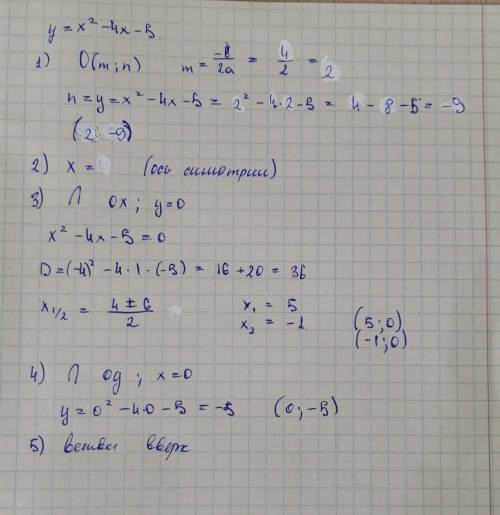 y = x² - 4x - 5.
1) O(m; n) m = -b/2a = 4/2 = 2
n = y = x² - 4x - 5 = 2² - 4·2 - 5 = 4 - 8 - 5 = -9
(2; -9)
2) x = (ось симотрии)
3) ∩ ox; y=0
x² - 4x - 5 = 0
D = (-4)² - 4·1·(-5) = 16 + 20 = 36
x₁/₂ = (4 ± 6)/2 x₁ = 5
x₂ = -1 (5; 0)
(-1; 0)
4) ∩ оy; x=0
y = 0² - 4·0 - 5 = -5 (0; -5)
5) ветви вверх